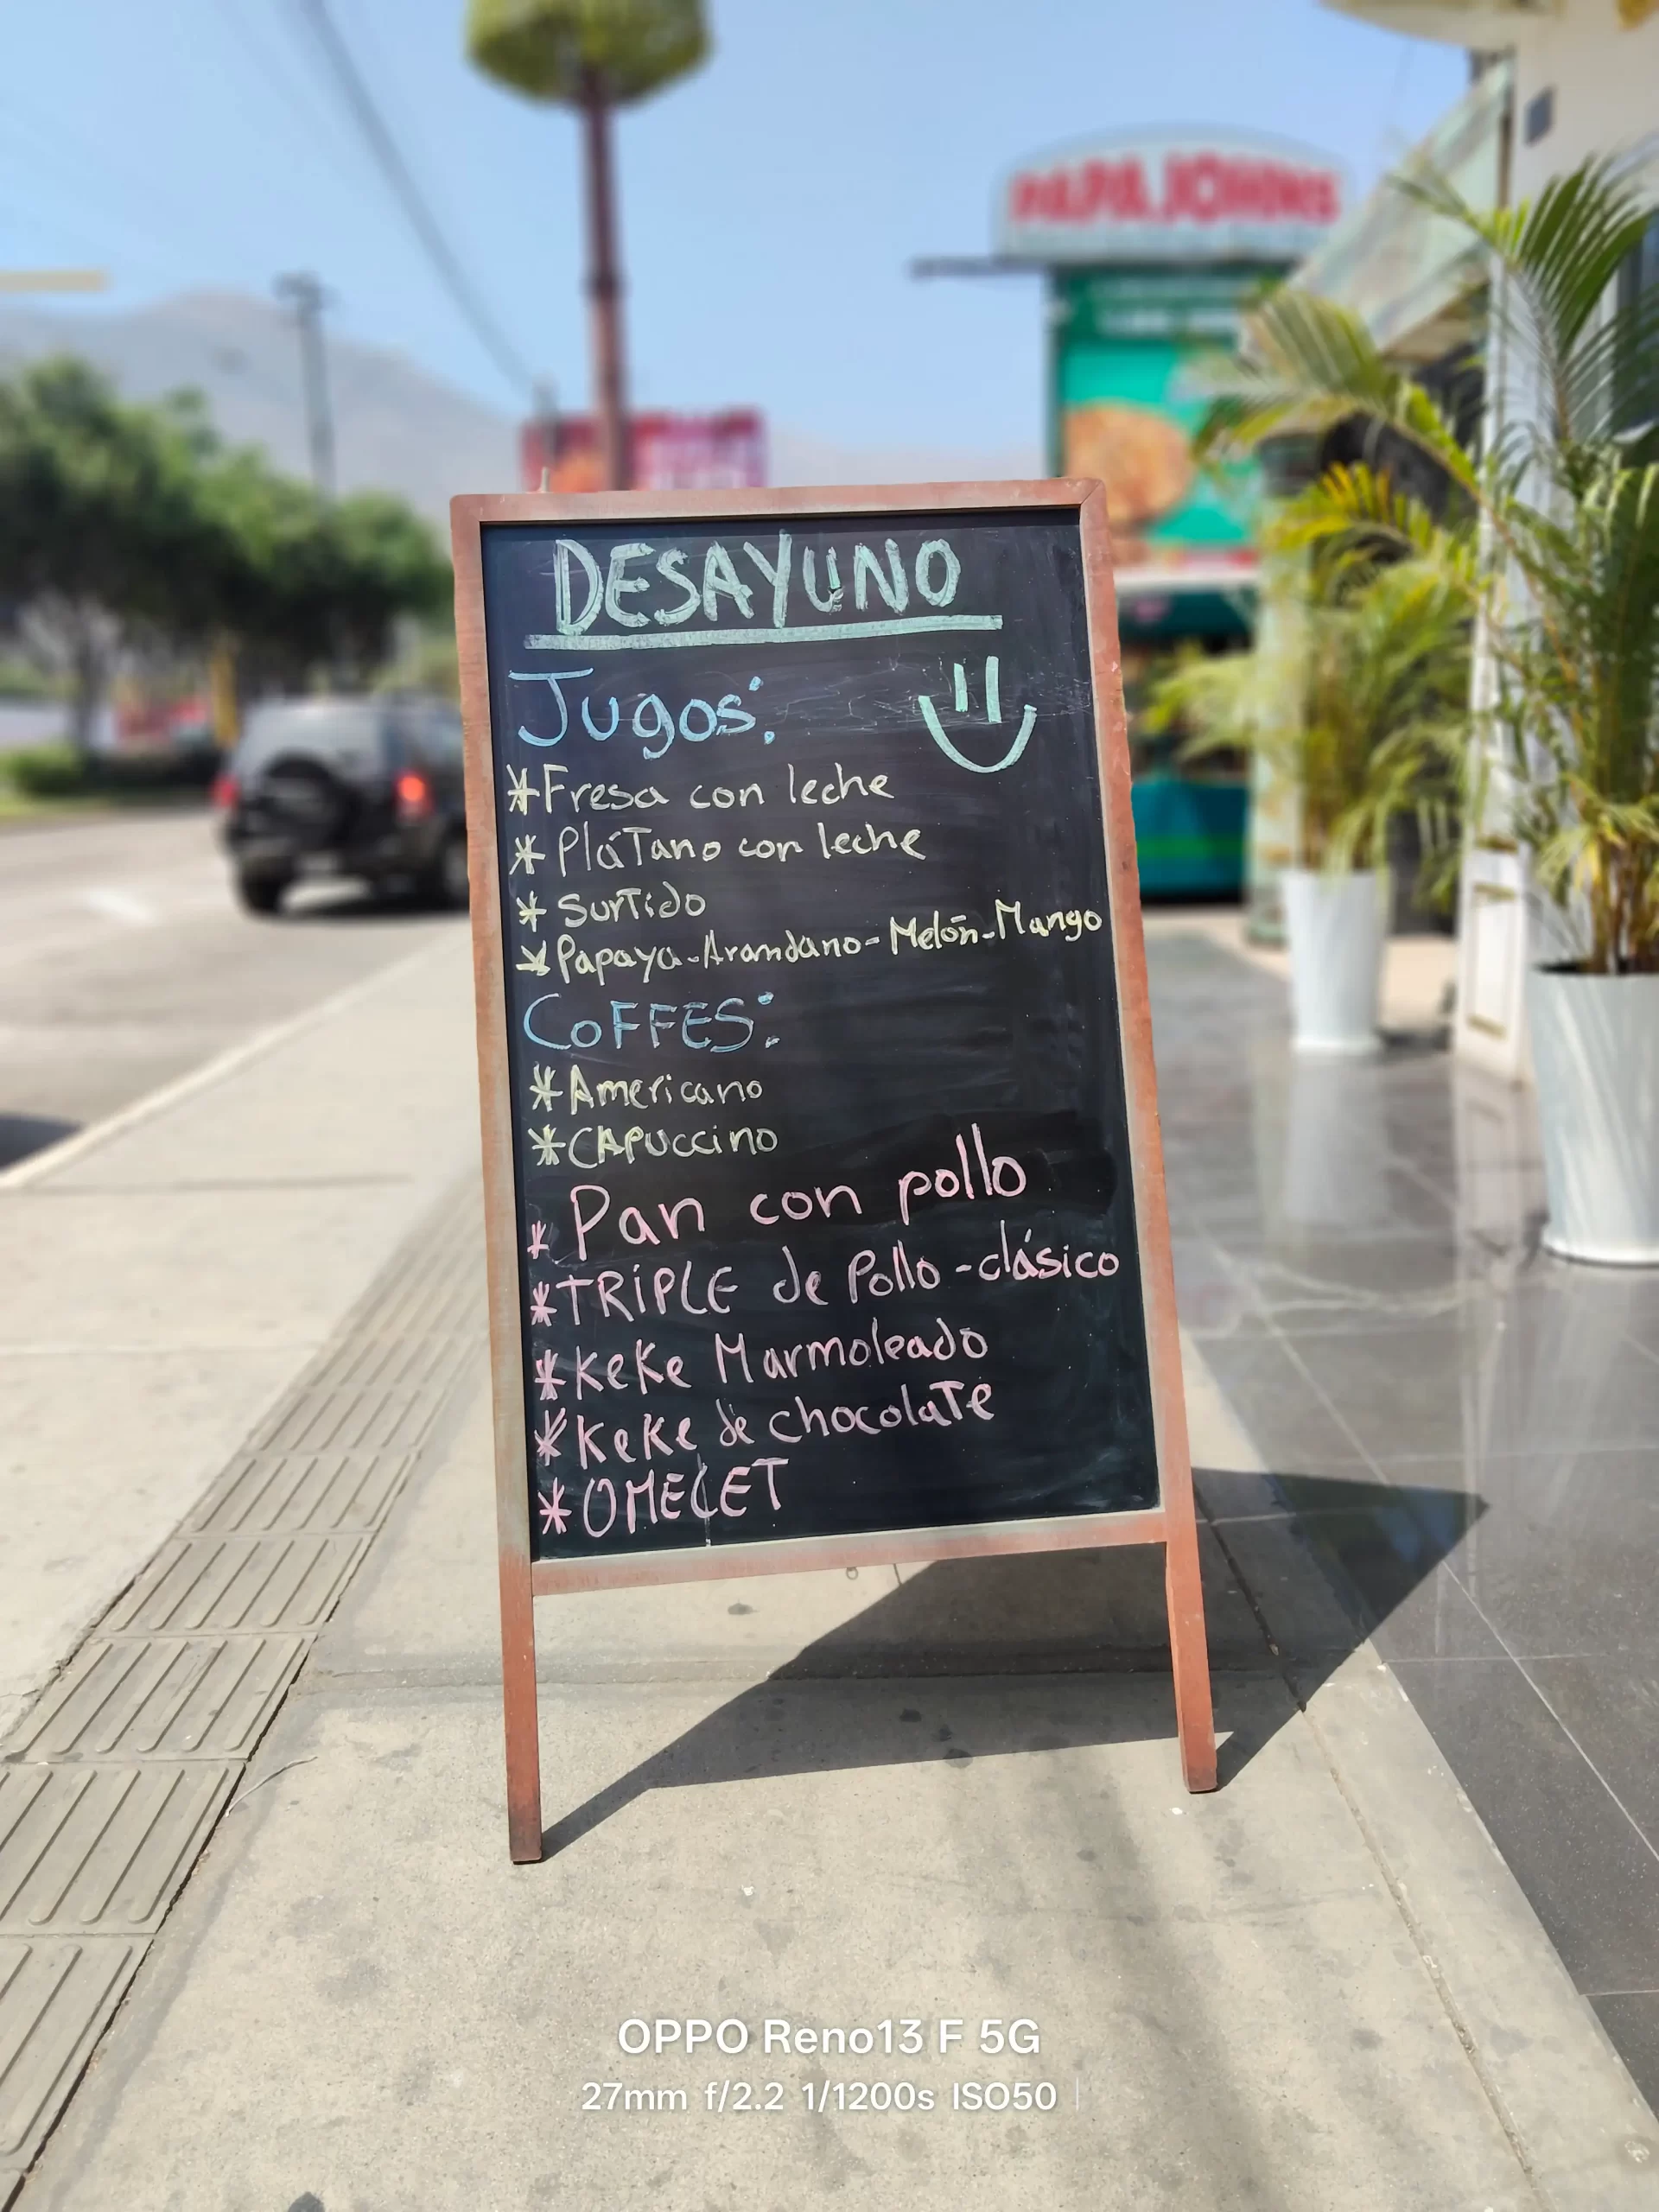 PAPA JOHNS
DESAYUNO
Jugos:
*Fresa con leche
*Plátano con leche
*Surtido
*Papaya-Arandano-Melón-Mango
COFFES:
*Americano
*CAPUCCINO
*Pan con pollo
*TRIPLE de Pollo-clásico
*KeKe Marmoleado
*KeKe de chocolate
*OMELET
OPPO Reno13 F 5G
27mm f/2.2 1/1200s ISO50